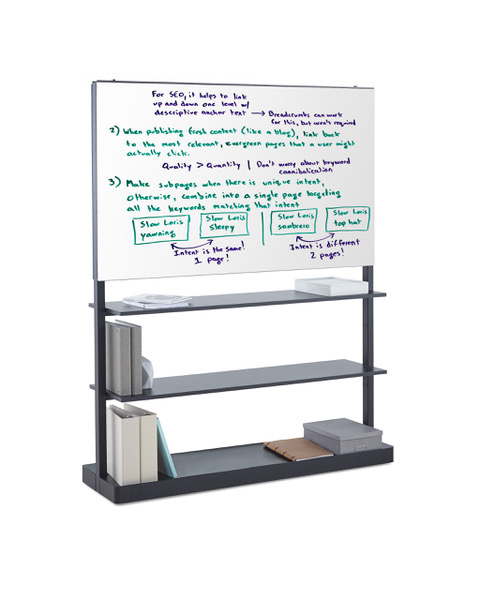 For SEO, it helps to link
up and down one level w/
descriptive anchor text → Breadcrumbs can work
for this, but aren't required
2) When publishing fresh content (like a blog), link back
to the most relevant, evergreen pages that a user might
actually click.
Quality > Quantity | Don't worry about keyword
cannibalization
3) Make subpages when there is unique intent,
otherwise, combine into a single page targeting
all the keywords matching that intent
Slow Loris
yawning
Slow Loris
sleepy
Slow Loris
sombrero
Slow Loris
top hat
Intent is the same!
1 page!
Intent is different
2 pages!